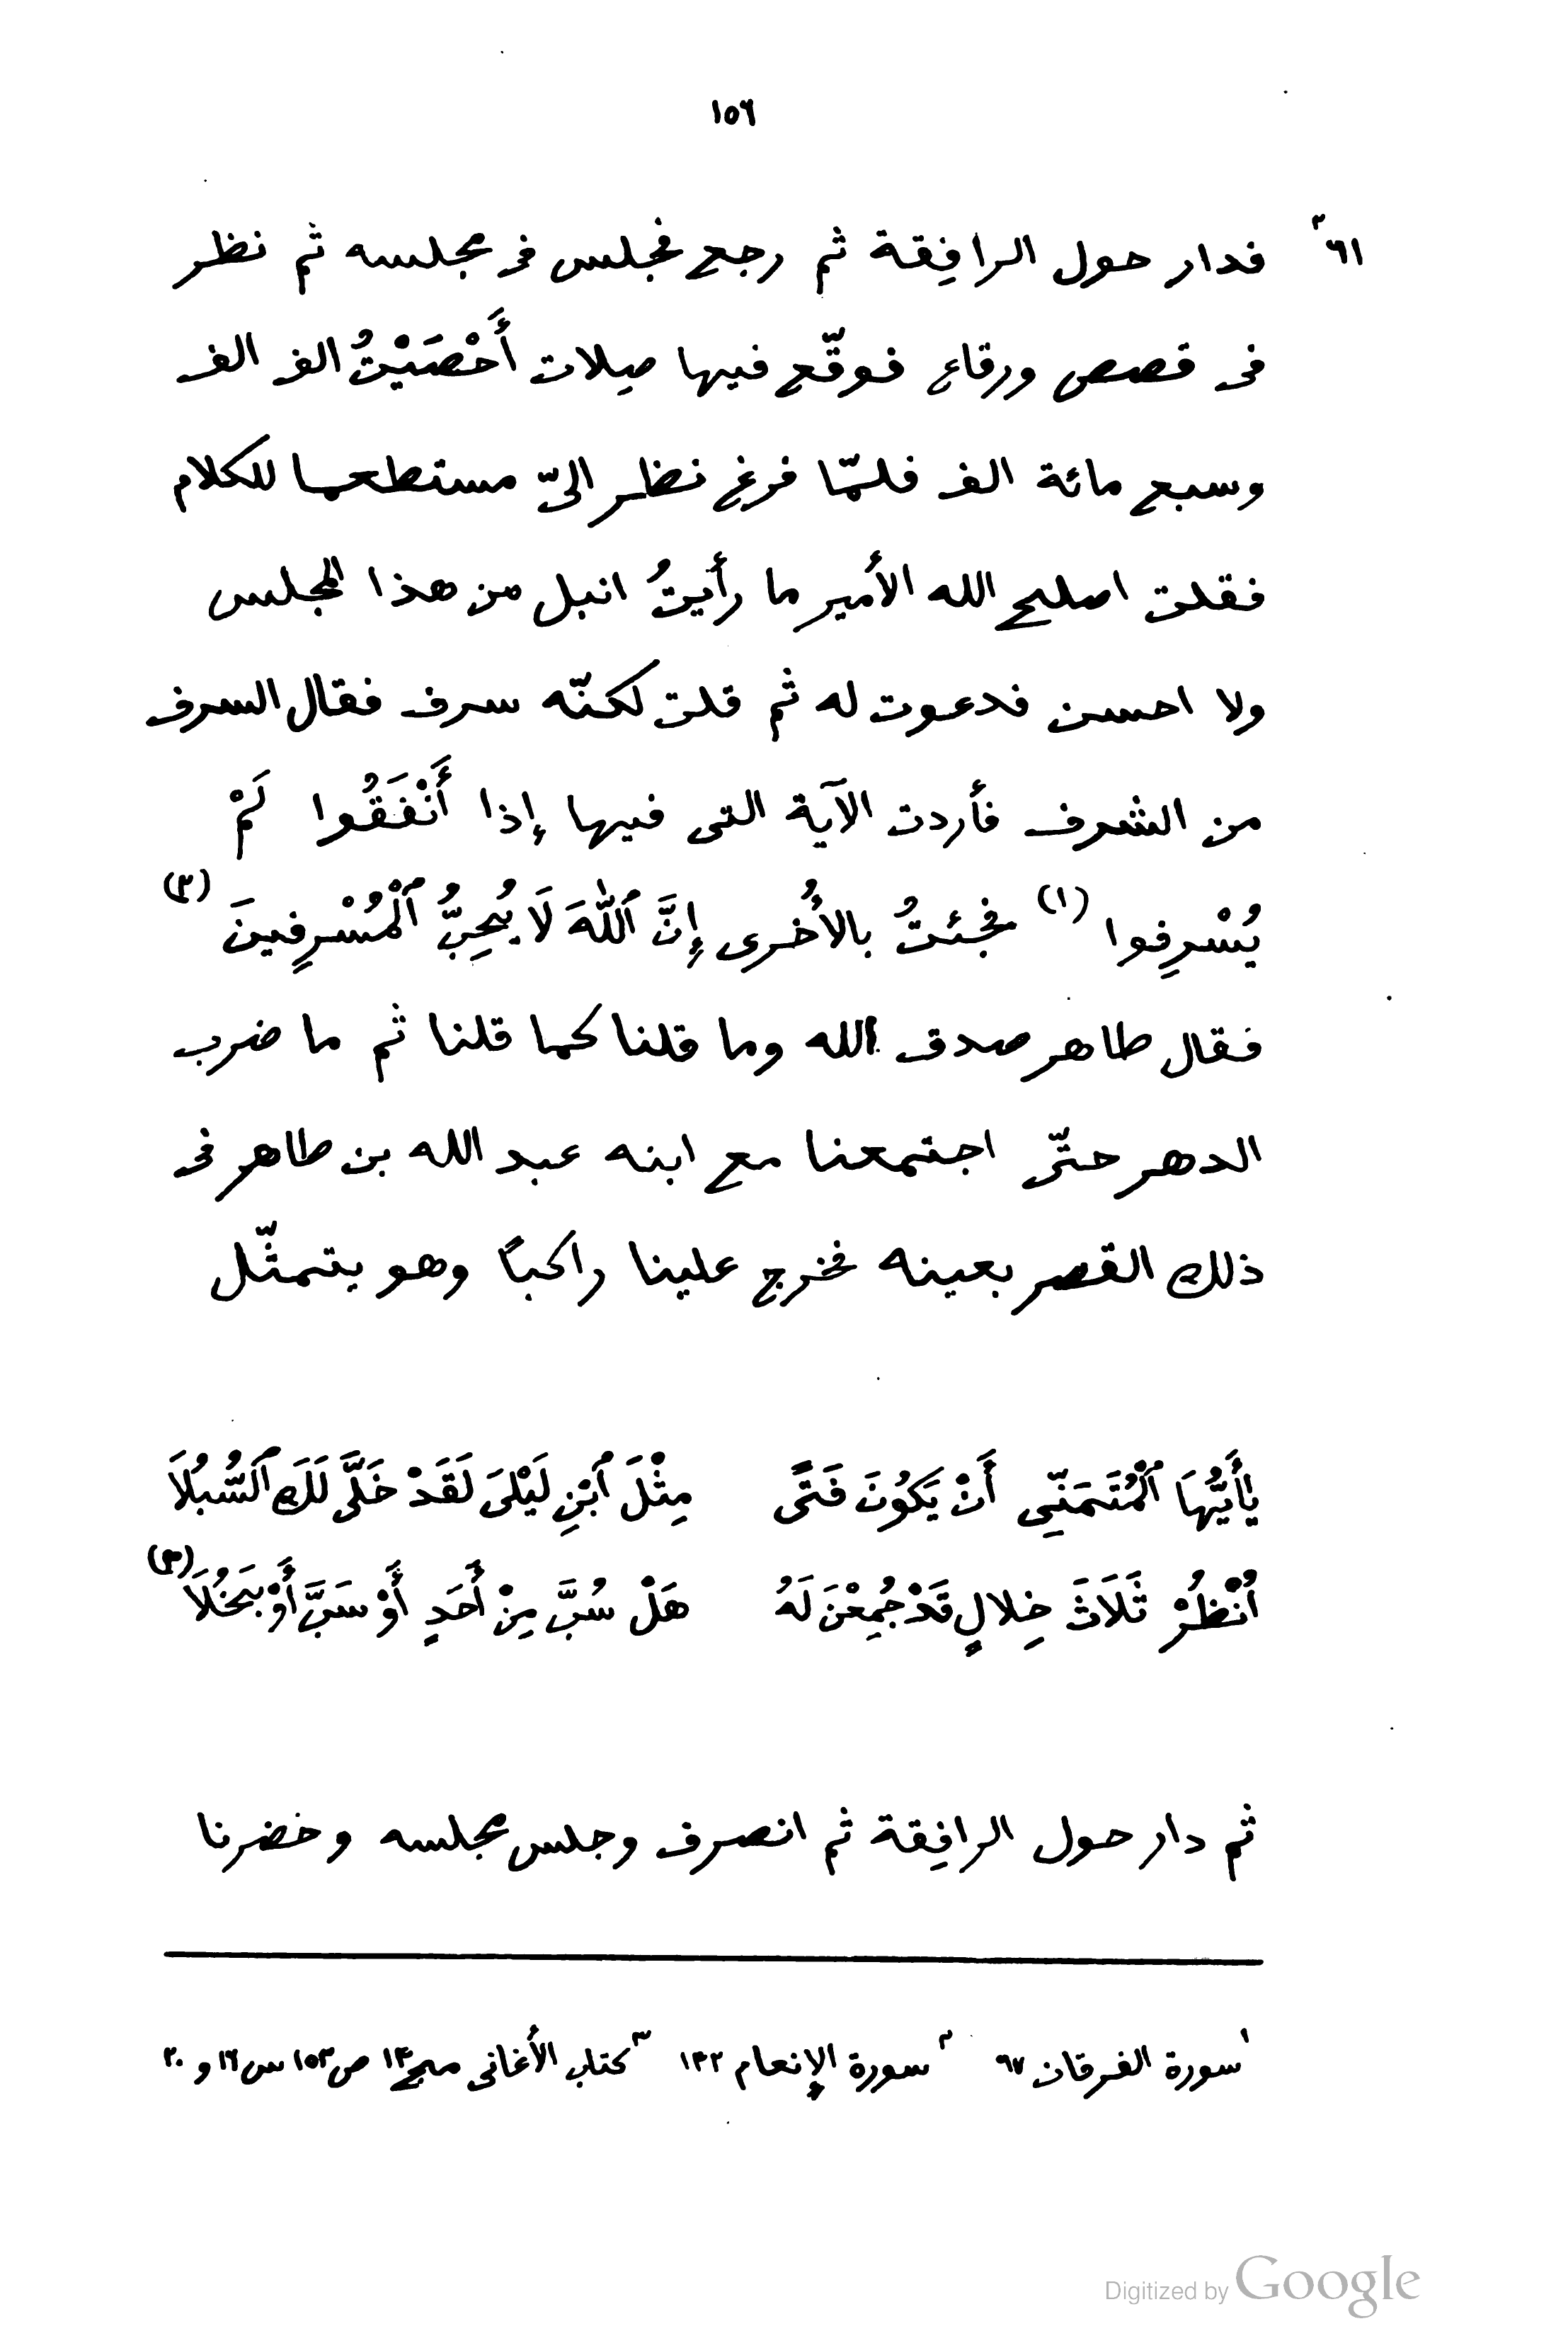 ١٥٦
٦١ ٣
فدار حول الرافِقة ثم رجع فجلس فى مجلسه ثم نظر
فى قصص ورقاع فوقّع فيها صِلات أَحْصَيْتُ الف الف
وسبع مائة الف فلمّا فرغ نظر الىّ مستطعما للكلام
فقلت اصلح الله الأمير ما رأيتُ انبل من هذا المجلس
ولا احسن فدعوت له ثم قلت لكنّه سرف فقال السرف
من الشرف فأردت الآية التى فيها إذا أَنْفَقُوا لَمْ
يُسْرِفوا (١) فجئتُ بالأُخرى إِنَّ ٱللهَ لَا يُحِبُّ ٱلْمُسْرِفِينَ (٢)
فقال طاهر صدق الله وما قلنا كما قلنا ثم ما ضرب
الدهر حتّى اجتمعنا مع ابنه عبد الله بن طاهر فى
ذلك القصر بعينه فخرج علينا راكبًا وهو يتمثّل
يٰأَيُّهَا ٱلْمُتَمَنِّى أَنْ يَكُونَ فَتًى مِثْلَ ٱبْنِ لَيْلَىَ لَقَدْ خَلَّى لَكَ ٱلسُّبُلَا
أُنْظُرْ ثَلَاثَ خِلالٍ قَدْ جُمِعْنَ لَهُ هَلْ سُبَّ مِنْ أَحَدٍ أَوْ سَبَّ أَوْ بَخُلَا (٣)
ثم دار حول الرافِقة ثم انصرف وجلس مجلسه وحضرنا
١ سورة الفرقان ٦٧ ٢ سورة الإنعام ١٤٢ ٣ كتاب الأغانى مج ١٤ ص ١٥٣ س ١٦ و ٢٠
Digitized by Google